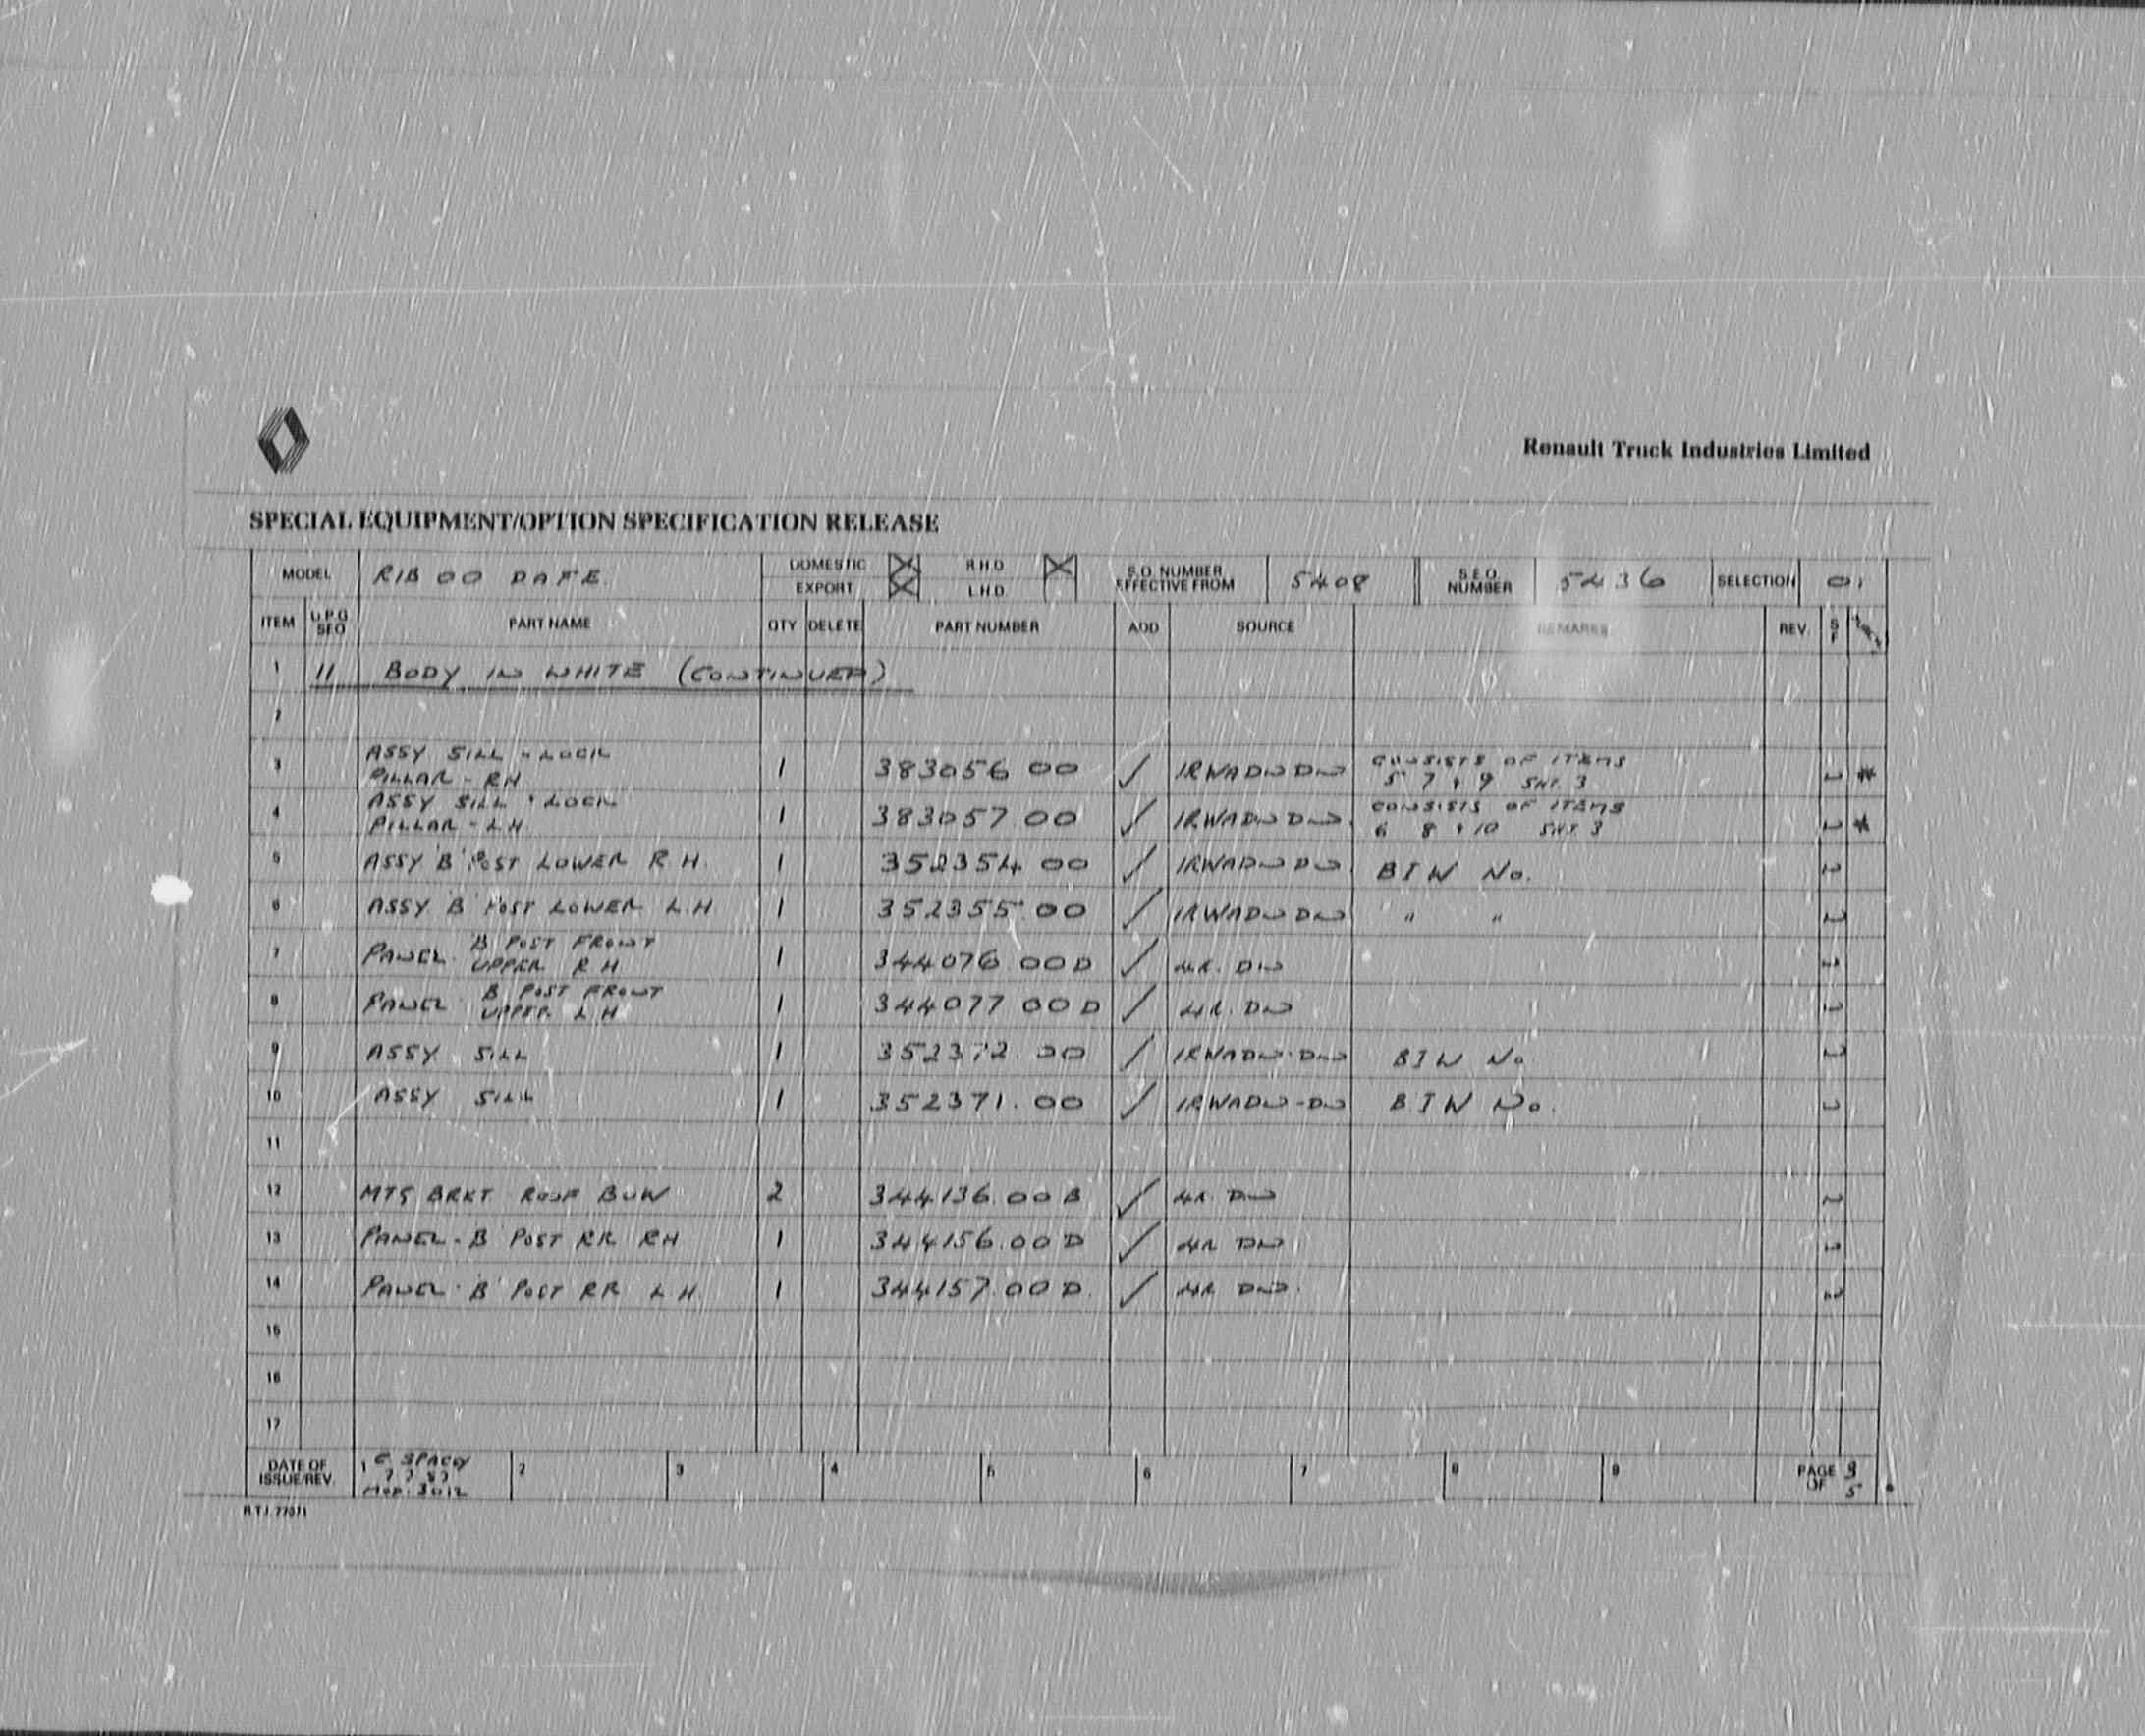 Renault Truck Industries Limited
SPECIAL EQUIPMENT/OPTION SPECIFICATION RELEASE
MODEL R1B 00 DAFE DOMESTIC EXPORT R.H.D L.H.D. S.O. NUMBER EFFECTIVE FROM 5408 S.E.O. NUMBER 5436 SELECTION 01
ITEM U.P.G SEQ PART NAME QTY DELETE PART NUMBER ADD SOURCE REMARKS REV. S F
1 11 BODY IN WHITE (CONTINUED)
2
3 ASSY SILL - LOCK PILLAR - RH 1 383056 00 ✓ IRWADN DN CONSISTS OF ITEMS 5 7 + 9 SHT. 3 *
4 ASSY SILL - LOCK PILLAR - LH 1 383057 00 ✓ IRWADN DN CONSISTS OF ITEMS 6 8 + 10 SHT. 3 *
5 ASSY 'B' POST LOWER R H. 1 352354 00 ✓ IRWADN DN BIW No.
6 ASSY 'B' POST LOWER L.H. 1 352355.00 ✓ IRWADN DN " "
7 PANEL - 'B' POST FRONT UPPER R H 1 344076.00 D ✓ DN
8 PANEL - 'B' POST FRONT UPPER L H 1 344077 00 D ✓ DN
9 ASSY SILL 1 352372.00 ✓ IRWADN-DN BIW No
10 ASSY SILL 1 352371.00 ✓ IRWADN-DN BIW No.
11
12 MTG BRKT ROOF BOW 2 344136.00 B ✓ DN
13 PANEL - 'B' POST RR RH 1 344156.00 D ✓ DN
14 PANEL - 'B' POST RR L H. 1 344157.00 D. ✓ DN.
15
16
17
DATE OF ISSUE/REV. 1 C. SPACEY 2 3 4 5 6 7 8 9 PAGE 3 OF 5
R.T.I. 77071